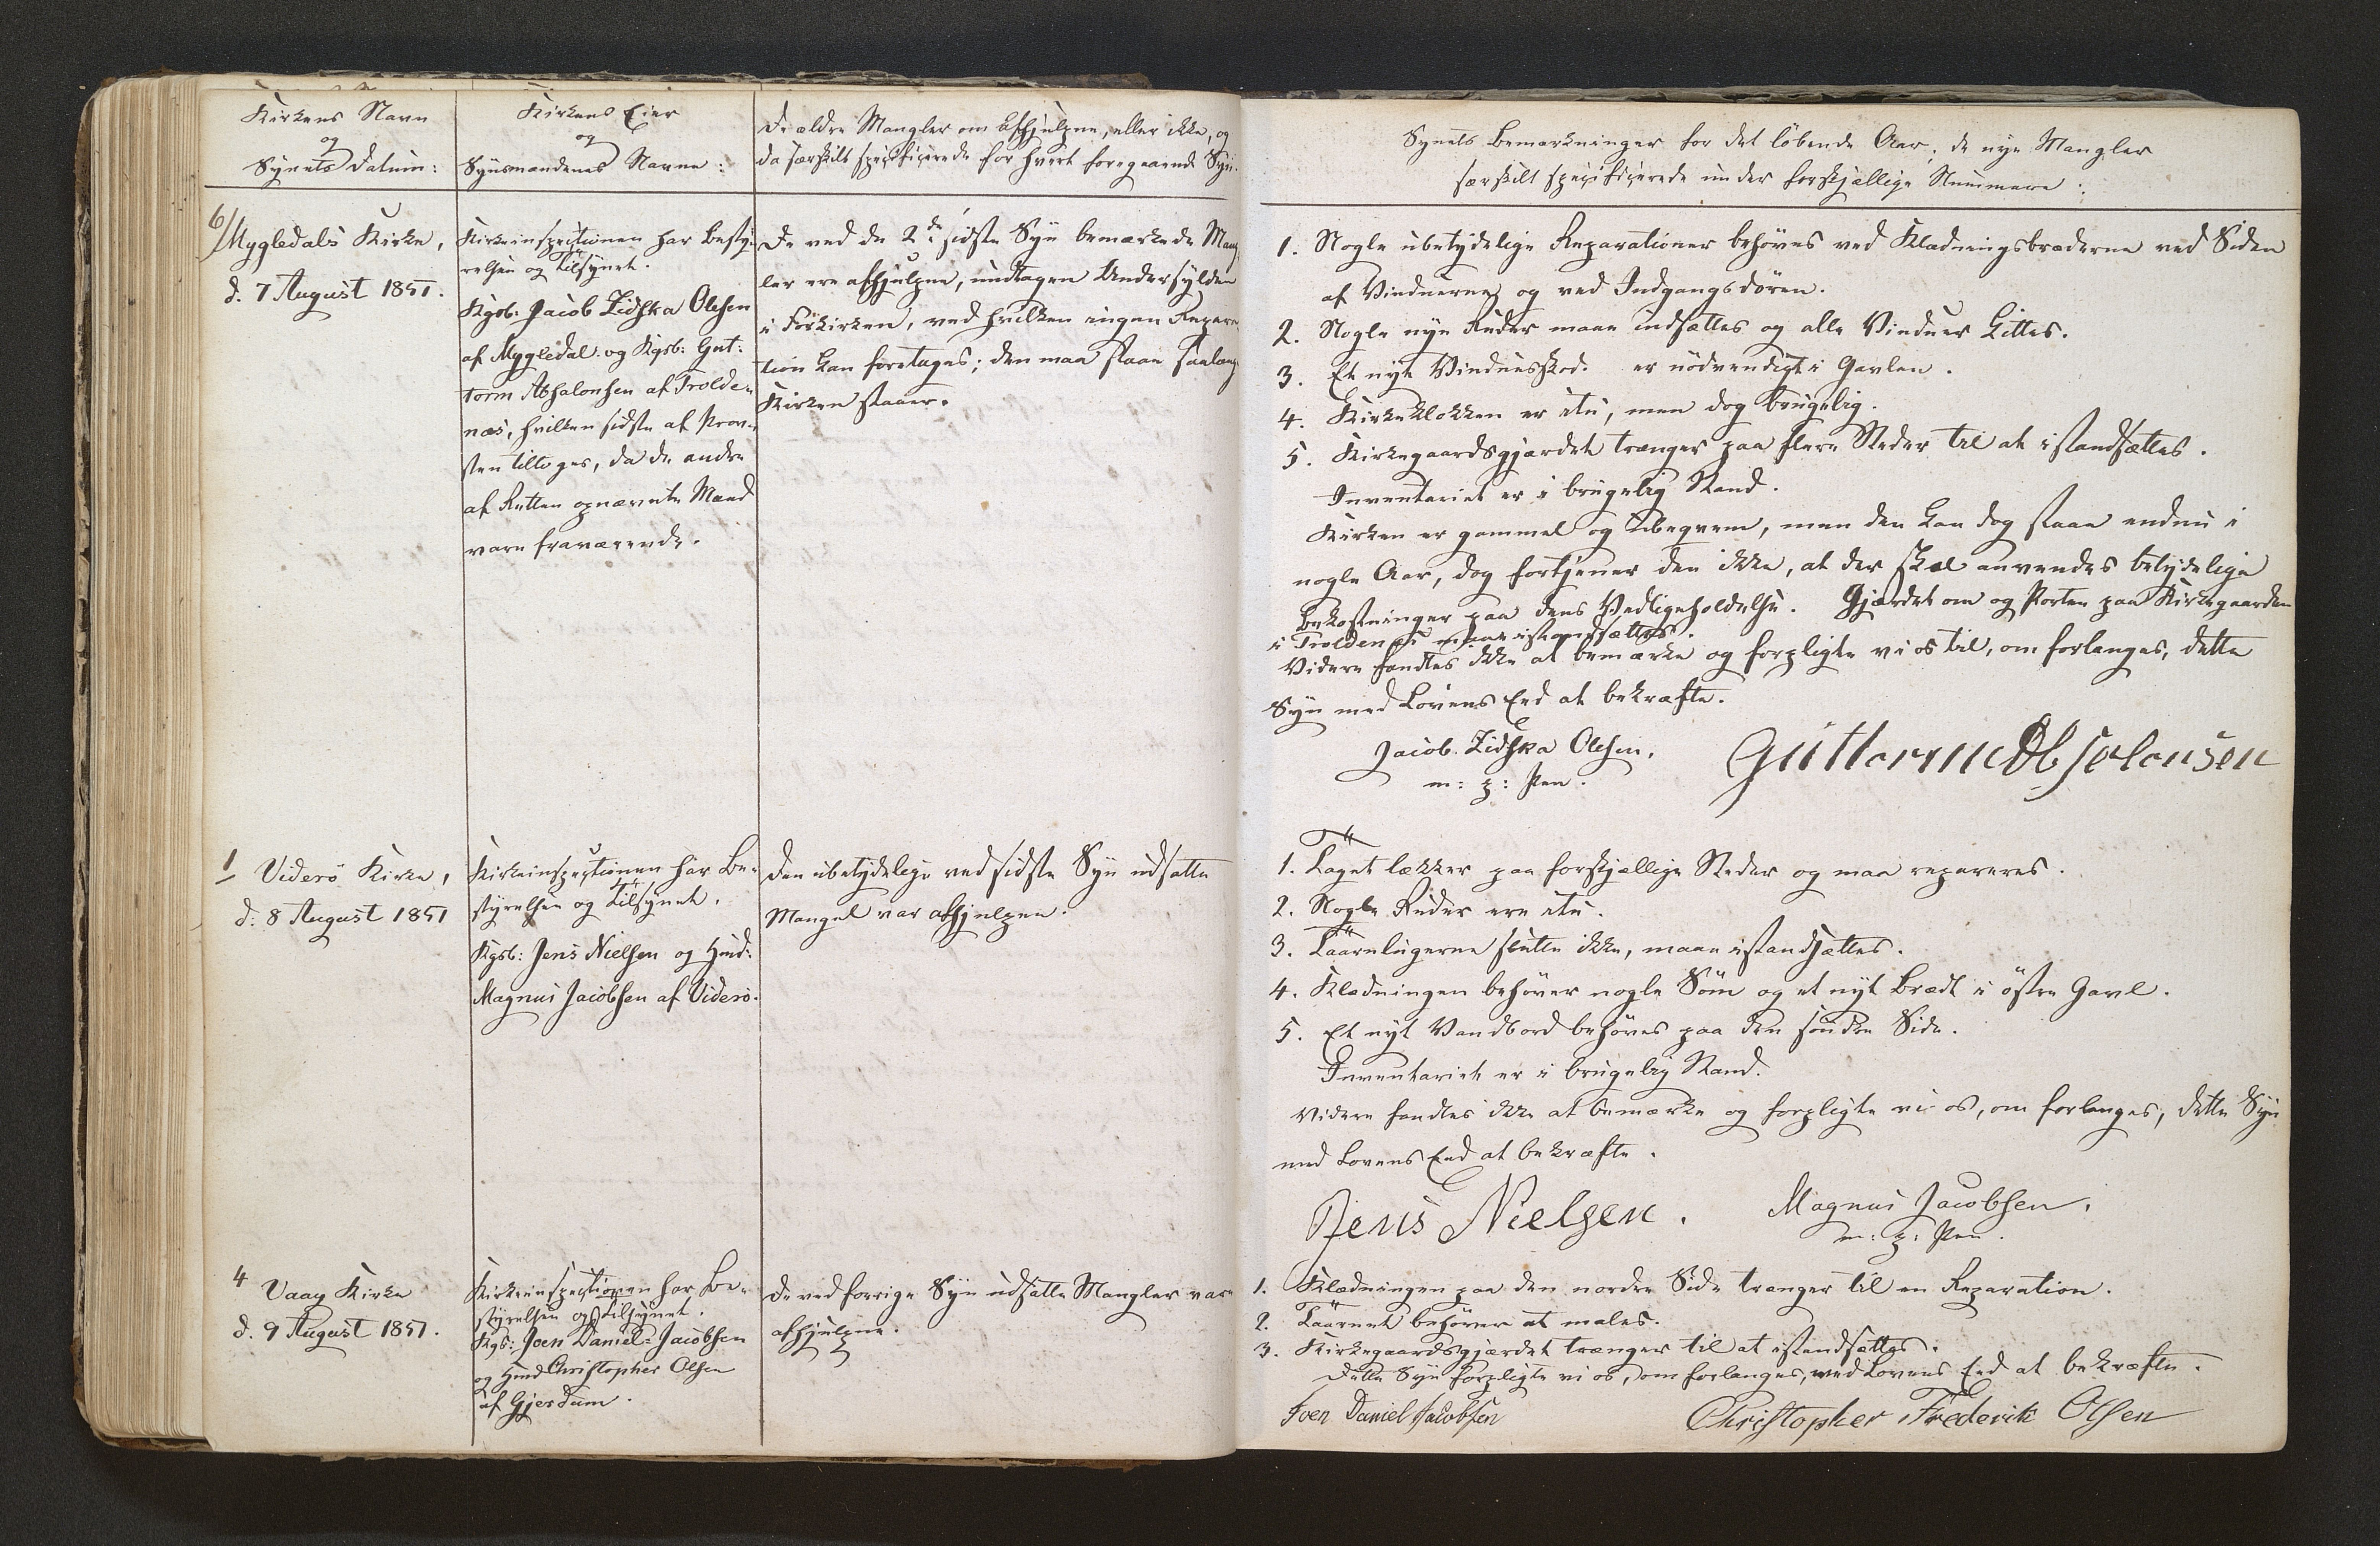 Kirkens Navn
og
Synets Datum:
Kirkens Eier
og
Synsmændenes Navne:
De ældre Mangler om afhjulpne, eller ikke, og
da særskilt specificerede for hvert foregaaende Syn.
6/ Mygledals Kirke,
d. 7 August 1851.
Kirkeinspectionen har Besty-
relsen og Tilsynet.
Kgsb: Jacob Zidska Olesen
af Myggledal og Kgsb: Gut-
torm Absalonsen af Trolde-
næs, hvilken sidste af Prov-
sten tiltoges, da de andre
af Retten opnævnte Mænd
vare fraværende.
De ved de 2de sidste Syn bemærkede Mang-
ler ere afhjulpne, undtagen Undersylden
i Forkirken, ved hvilken ingen Repara-
tion kan foretages; den maa staae saalænge
Kirken staaer.
1
Viderö Kirke,
d. 8 August 1851
Kirkeinspectionen har Be-
styrelsen og Tilsynet.
Kgsb: Jens Nielsen og Huusd:
Magnus Jacobsen af Viderö.
Den ubetydelige ved sidste Syn udsatte
Mangel var afhjulpen.
4
Vaag Kirke
d. 9 August 1851.
Kirkeinspectionen har Be-
styrelsen og Tilsynet.
Kgs: Joen Daniel Jacobsen
og Huusd Christopher Olsen
af Gjerdum.
De ved forrige Syn udsatte Mangler vare
afhjulpne.
Synets Bemærkninger for det löbende Aar, de nye Mangler
særskilt specificerede under forskjellige Nummere:
1. Nogle ubetydelige Reparationer behöves ved Klædningsbræderne ved Siden
af Vinduerne og ved Indgangsdören.
2. Nogle nye Ruder maae indsættes og alle Vinduer Kittes.
3. Et nyt Vinduesskod. er nödvendigt i Gavlen.
4. Kirkeklokken er itu, men dog brugelig.
5. Kirkegaardsgjærdet trænger paa flere Steder til at istandsættes.
Inventariet er i brugelig Stand.
Kirken er gammel og ubeqvem, men den kan dog staae endnu i
nogle Aar, dog fortjener den ikke, at der skal anvendes betydelige
Bekostninger paa dens Vedligeholdelse. Gjærdet om og Porten paa Kirkegaarden
i Troldenæs maae istandsættes.
Videre fandtes ikke at bemærke og forpligte vi os til, om forlanges, dette
Syn med Lovens Eed at bekræfte.
Jacob Zidska Olesen,
m: p: Pen.
Guttorm Absolonsen
1. Taget lækker paa forskjellige Steder og maa repareres.
2. Nogle Ruder ere itu.
3. Taarnlugerne slutte ikke, maae istandsættes.
4. Klædningen behöver nogle Söm og et nyt Brædt i östre Gavl.
5. Et nyt Vandbord behöves paa den söndre Side.
Inventariet er i brugelig Stand.
Videre fandtes ikke at bemærke og forpligte vi os, om forlanges, dette Syn
med Lovens Eed at bekræfte.
Jens Nielsen.
Magnus Jacobsen,
m: p: Pen.
1. Klædningen paa den nordre Side trænger til en Reparation.
2. Taarnet behöver at males.
3. Kirkegaardsgjærdet trænger til at istandsættes.
Dette Syn forpligte vi os, om forlanges, med Lovens Eed at bekræfte.
Joen Daniel Jacobsen
Christopher Frederik Olsen